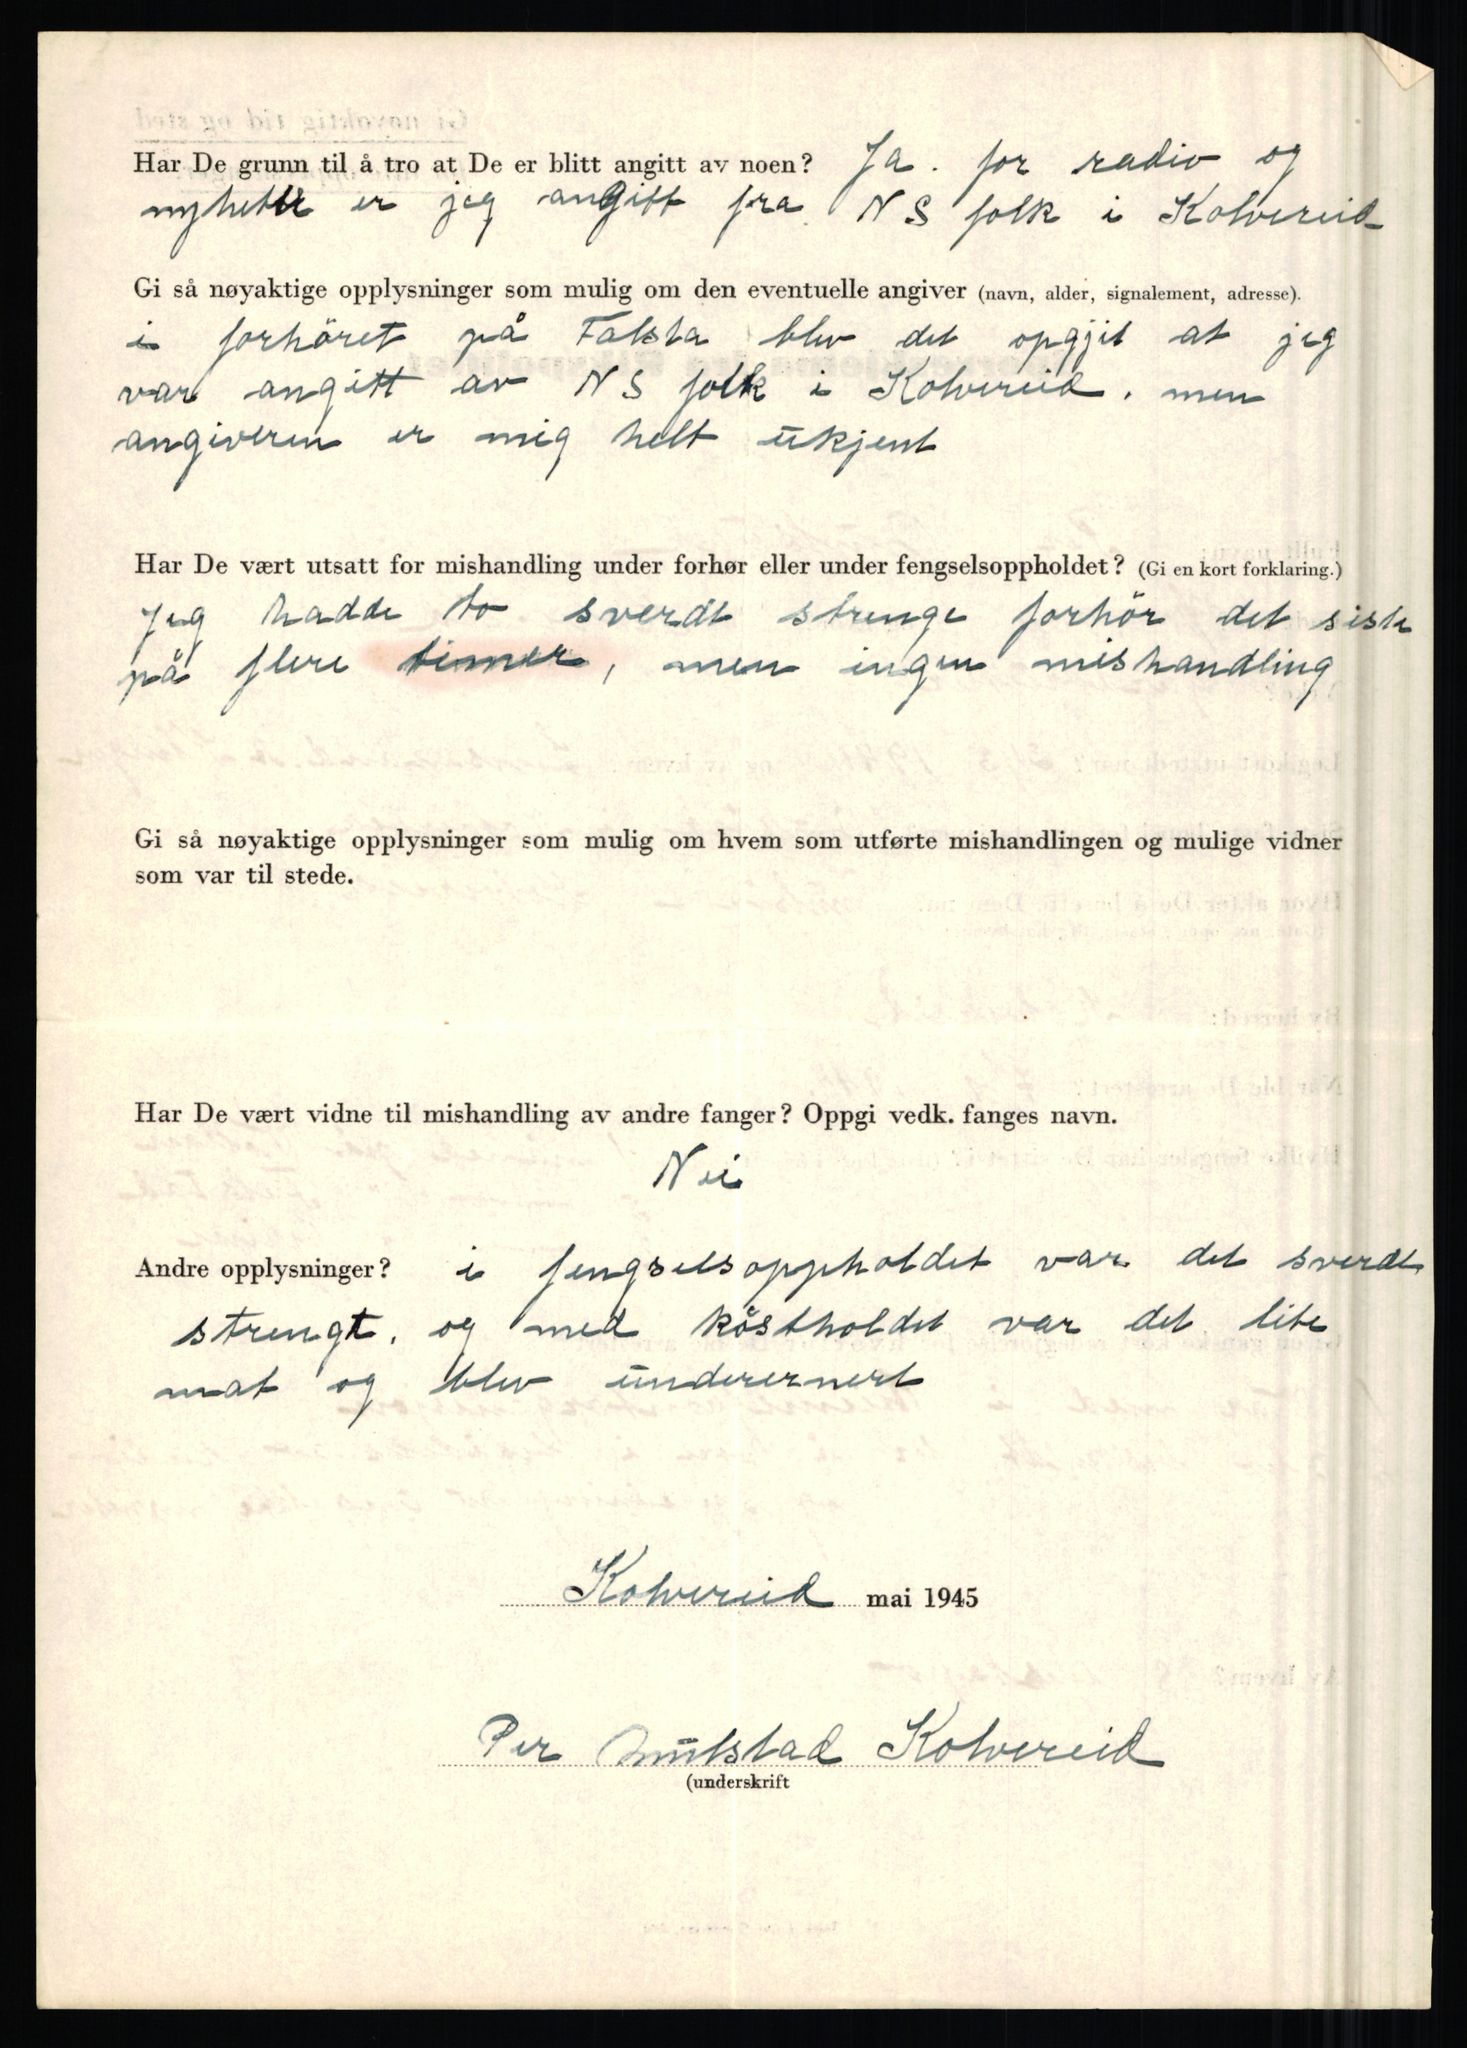 Har De grunn til å tro at De er blitt angitt av noen? Ja. for radio og
nyheter er jeg angitt fra NS folk i Kolvereid
Gi så nøyaktige opplysninger som mulig om den eventuelle angiver (navn, alder, signalement, adresse).
i forhöret på Falsta blev det opgjit at jeg
var angitt av NS folk i Kolvereid. men
angiveren er mig helt ukjent
Har De vært utsatt for mishandling under forhør eller under fengselsoppholdet? (Gi en kort forklaring.)
Jeg hadde to sverdt strenge forhör det siste
på flere timer, men ingen mishandling
Gi så nøyaktige opplysninger som mulig om hvem som utførte mishandlingen og mulige vidner
som var til stede.
Har De vært vidne til mishandling av andre fanger? Oppgi vedk. fanges navn.
Nei
Andre opplysninger? i fengselsoppholdet var det sverdt
strengt. og med köstholdet var det lite
mat og blev underernert
Kolvereid mai 1945
Per Kolvereid
(underskrift